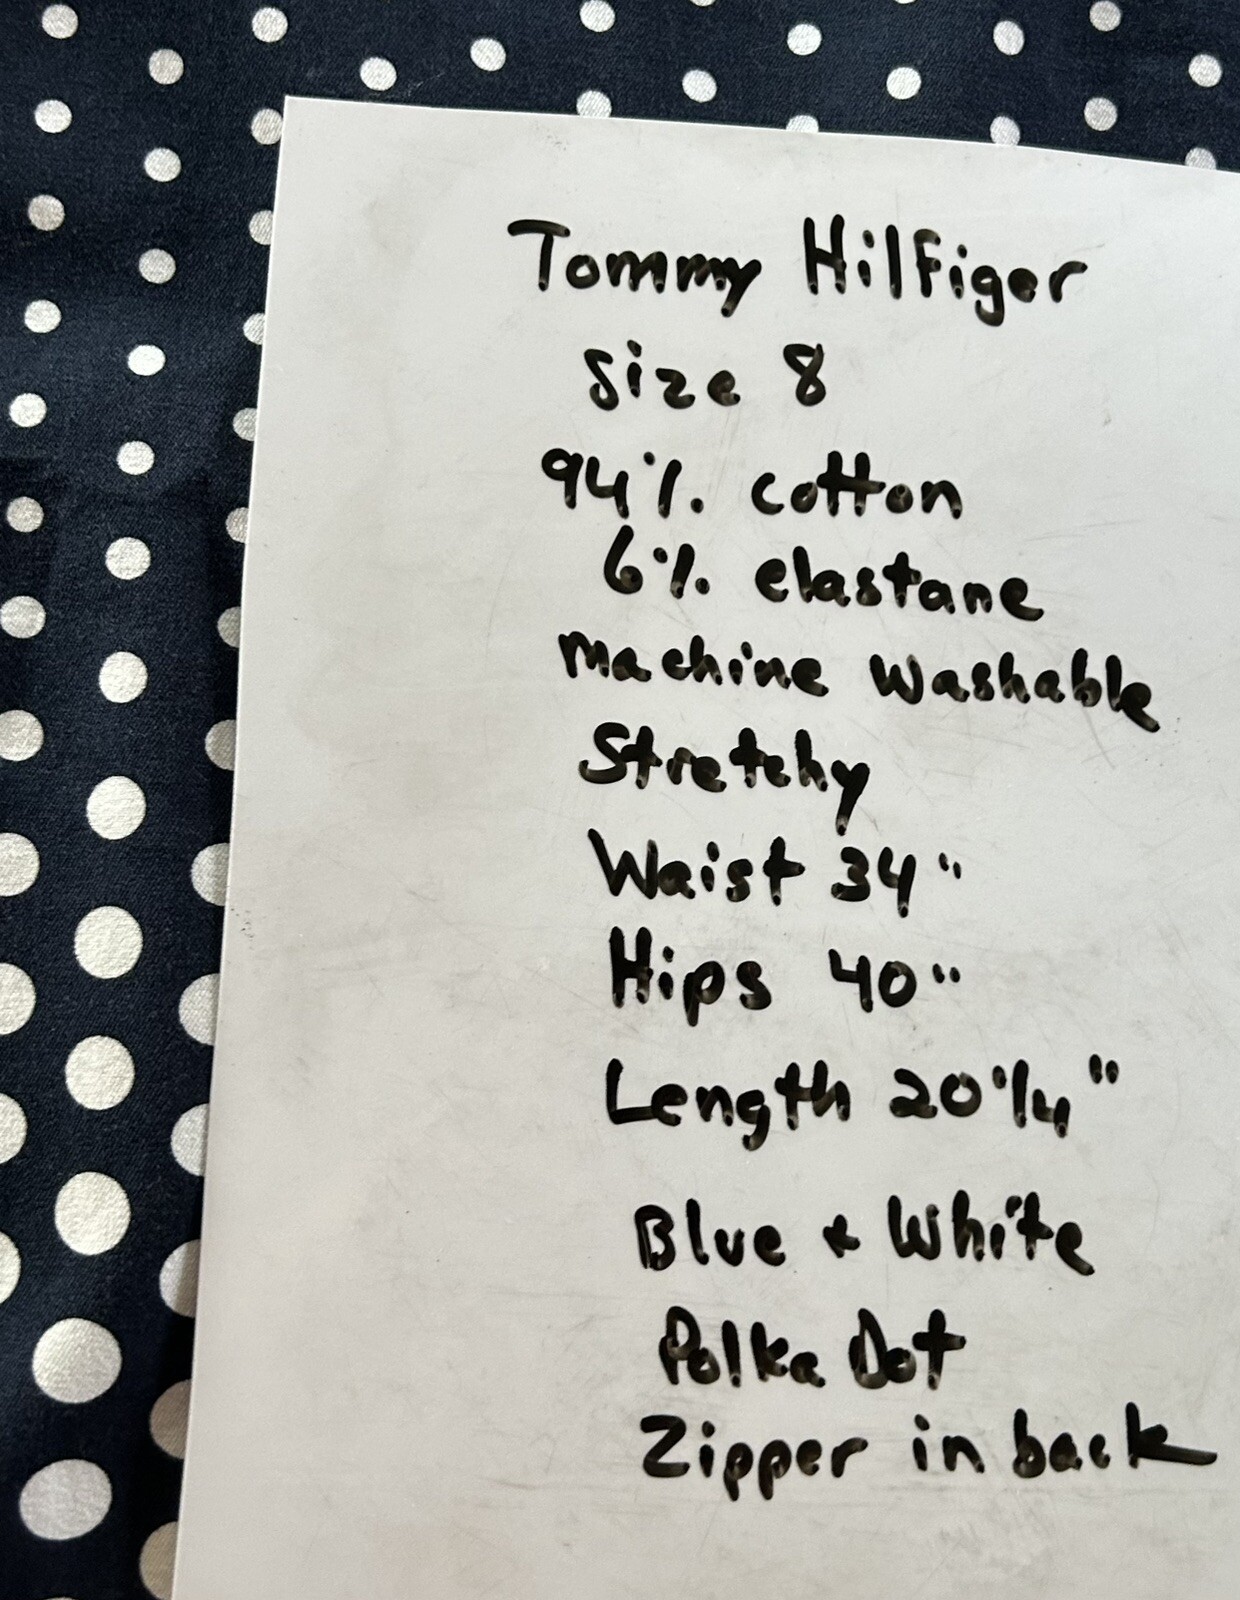 Tommy Hilfiger
Size 8
94% cotton
6% elastane
Machine Washable
Stretchy
Waist 34"
Hips 40"
Length 20 1/4"
Blue & White
Polka Dot
Zipper in back